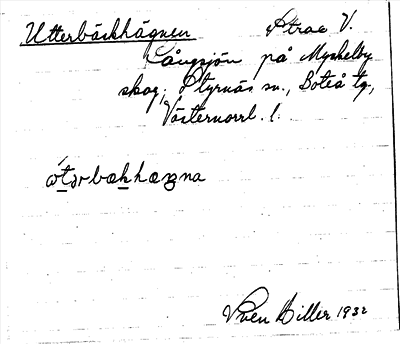 Utterbäckhägnen Strae V.
Långsjön på Myckelby
skog, Styrnäs sn., Boteå tg,
Västernorrl. l.
Sven Hiller 1932